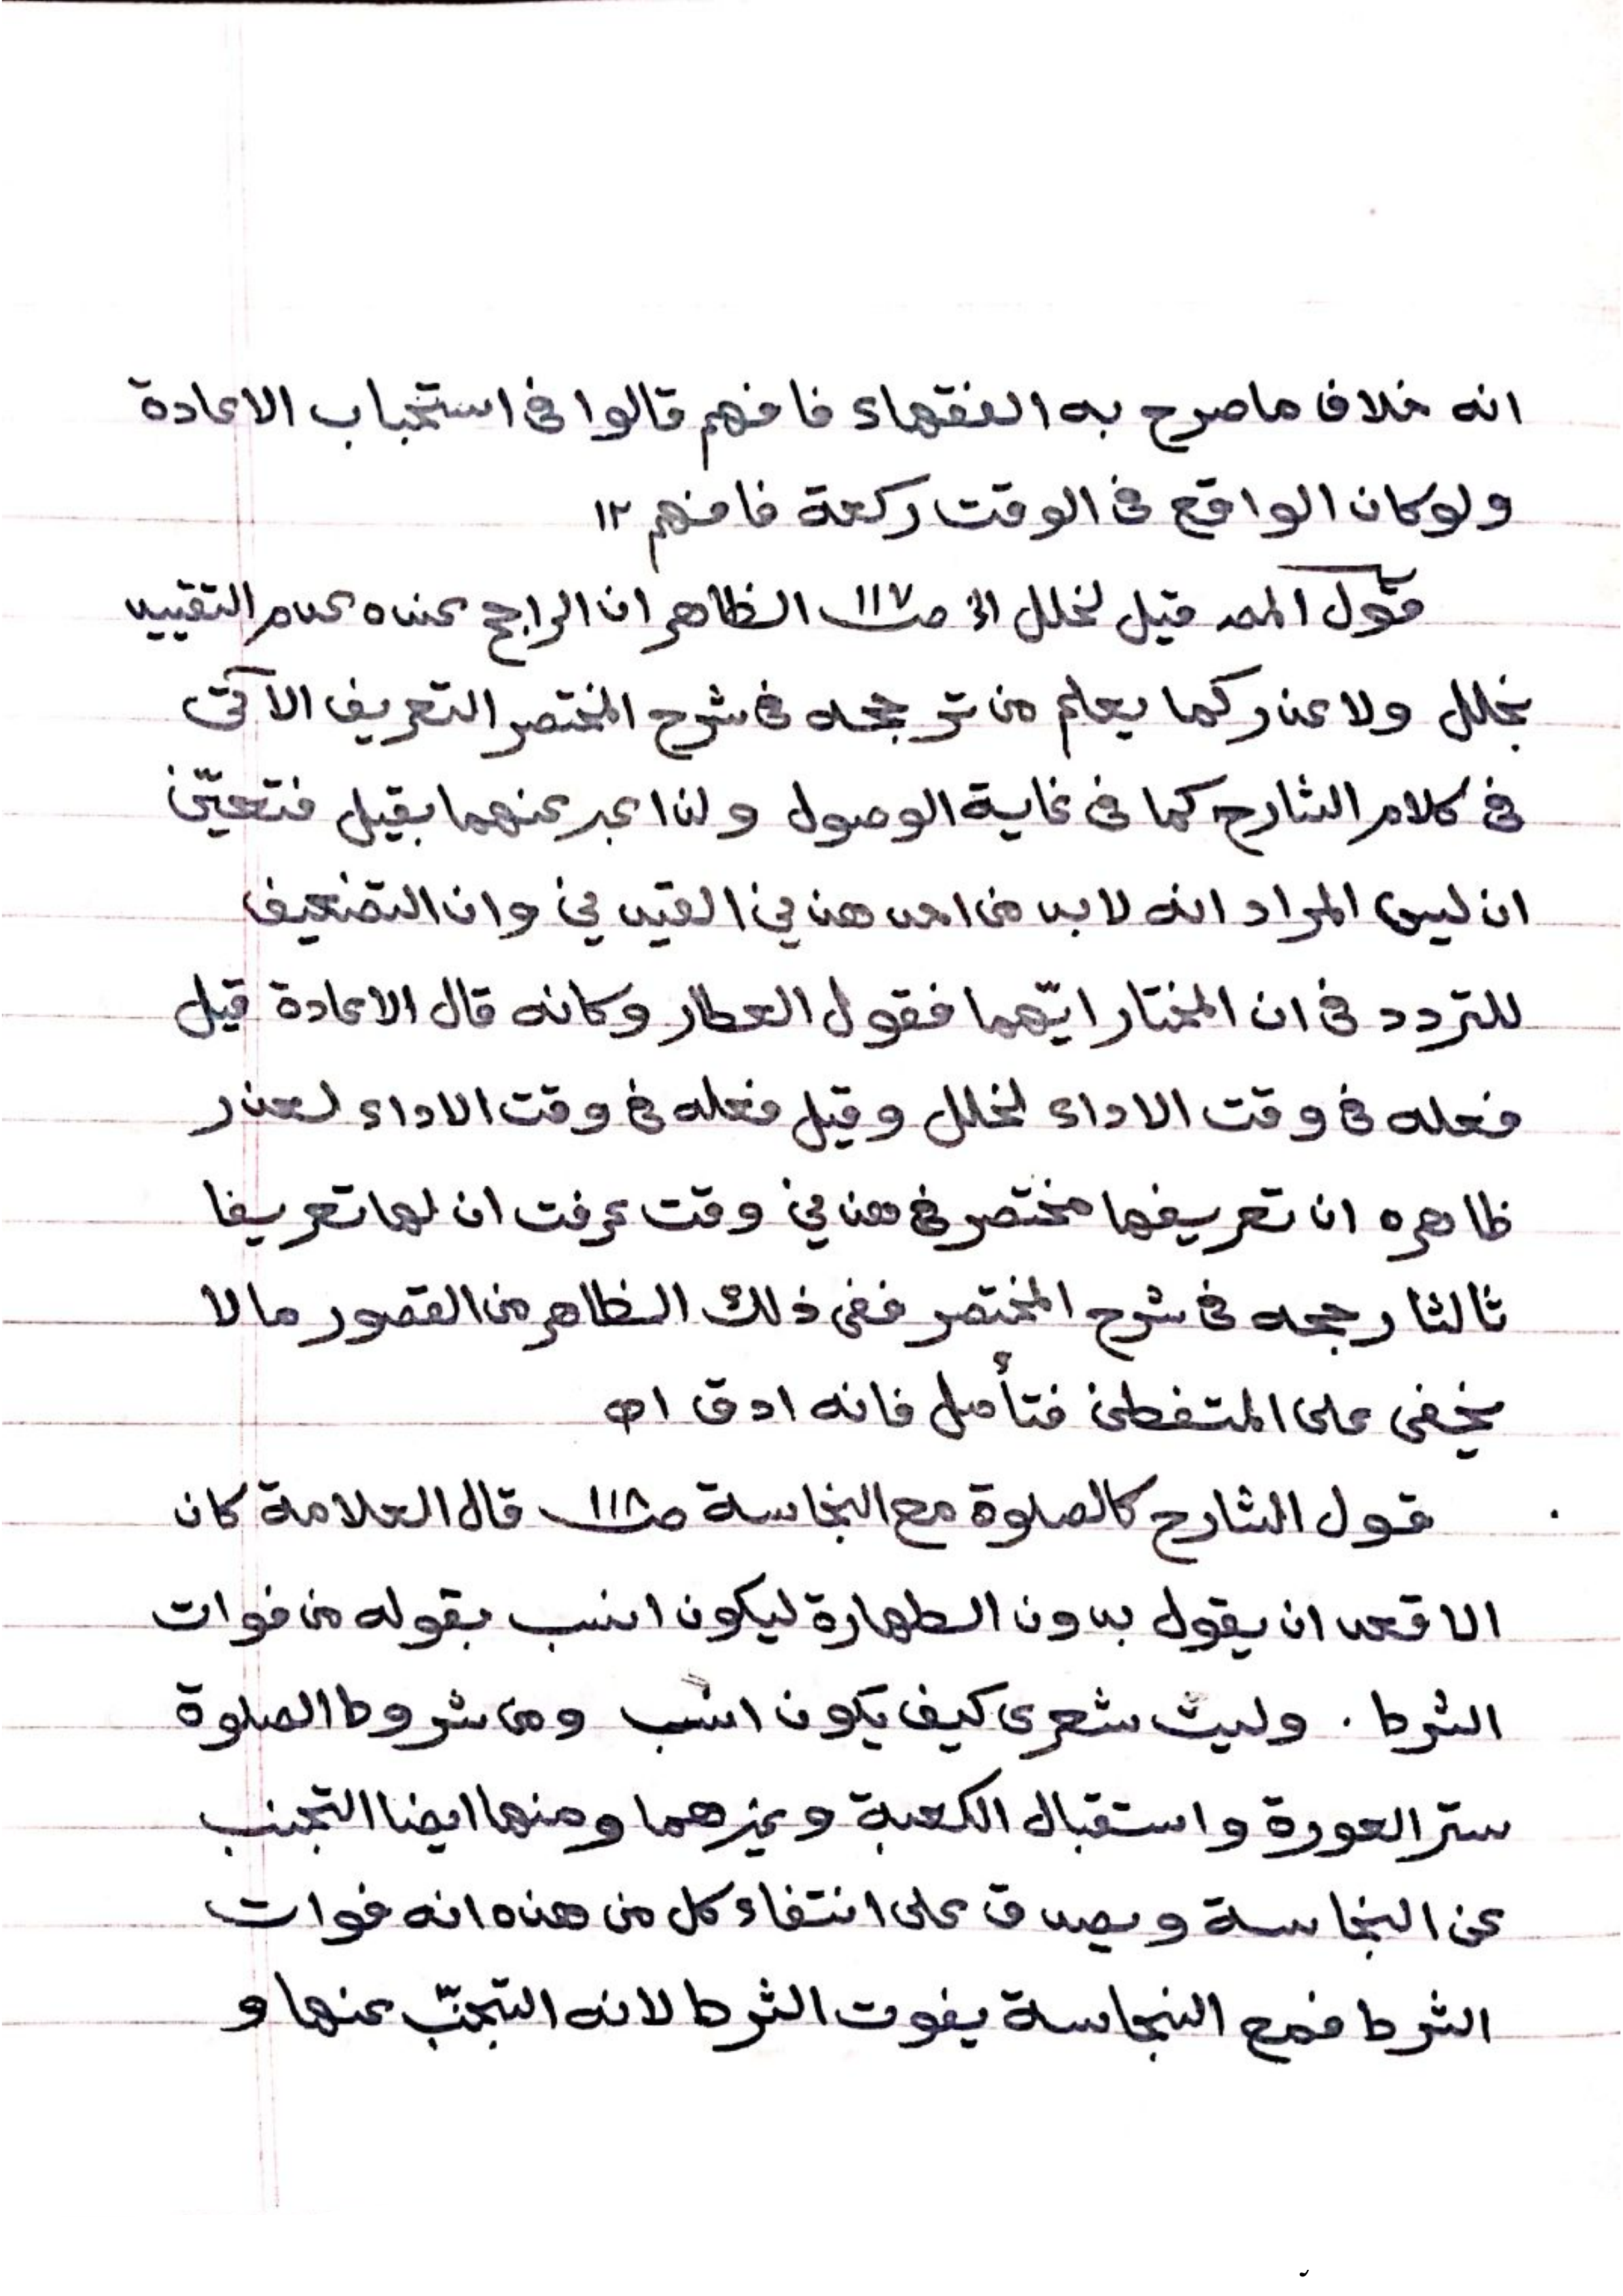 انه خلاف ما صرح به الفقهاء فافهم قالوا فى استحباب الاعادة
ولو كان الواقع فى الوقت ركعة فافهم ١٢
قول المصـ قيل لخلل الخ صـ ١١٧ الظاهر ان الراجح عنده عدم التقييد
بخلل ولا عذر كما يعلم من ترجيحه فى شرح المختصر التعريف الآتى
فى كلام الشارح كما فى غاية الوصول ولذا عبر عنهما بقيل فتعيّن
ان ليس المراد انه لا بد من احد هذين القيدين وان التضعيف
للتردد فى ان المختار ايّهما فقول العطار وكانه قال الاعادة قيل
فعله فى وقت الاداء لخلل وقيل فعله فى وقت الاداء لعذر
ظاهره ان تعريفها مختصر فى هذين وقت عرفت ان لها تعريفا
ثالثا رجحه فى شرح المختصر ففى ذلك الظاهر من القصور ما لا
يخفى على المتفطن فتأمل فانه ادق اهـ
قول الشارح كالصلوة مع النجاسة صـ ١١٨ قال العلامة كان
الاقعد ان يقول بدون الطهارة ليكون انسب بقوله من فوات
الشرط . وليت شعرى كيف يكون انسب ومن شروط الصلوة
ستر العورة واستقبال الكعبة وغيرهما ومنها ايضا التجنب
عن النجاسة ويصدق على انتفاء كل من هذه انه فوات
الشرط فمع النجاسة يفوت الشرط لانه التجنّب عنها و